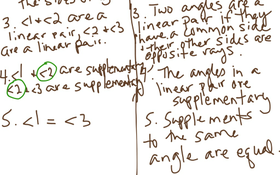 the sides of
3. <1 + <2 are a
linear pair, <2 + <3
are a linear pair.
4. <1 + <2 are supplementary
<2 + <3 are supplementary
5. <1 = <3
3. Two angles are a
linear pair if they
have a common side
+ their other sides are
opposite rays.
4. The angles in a
linear pair are
supplementary
5. Supplements
to the same
angle are equal.